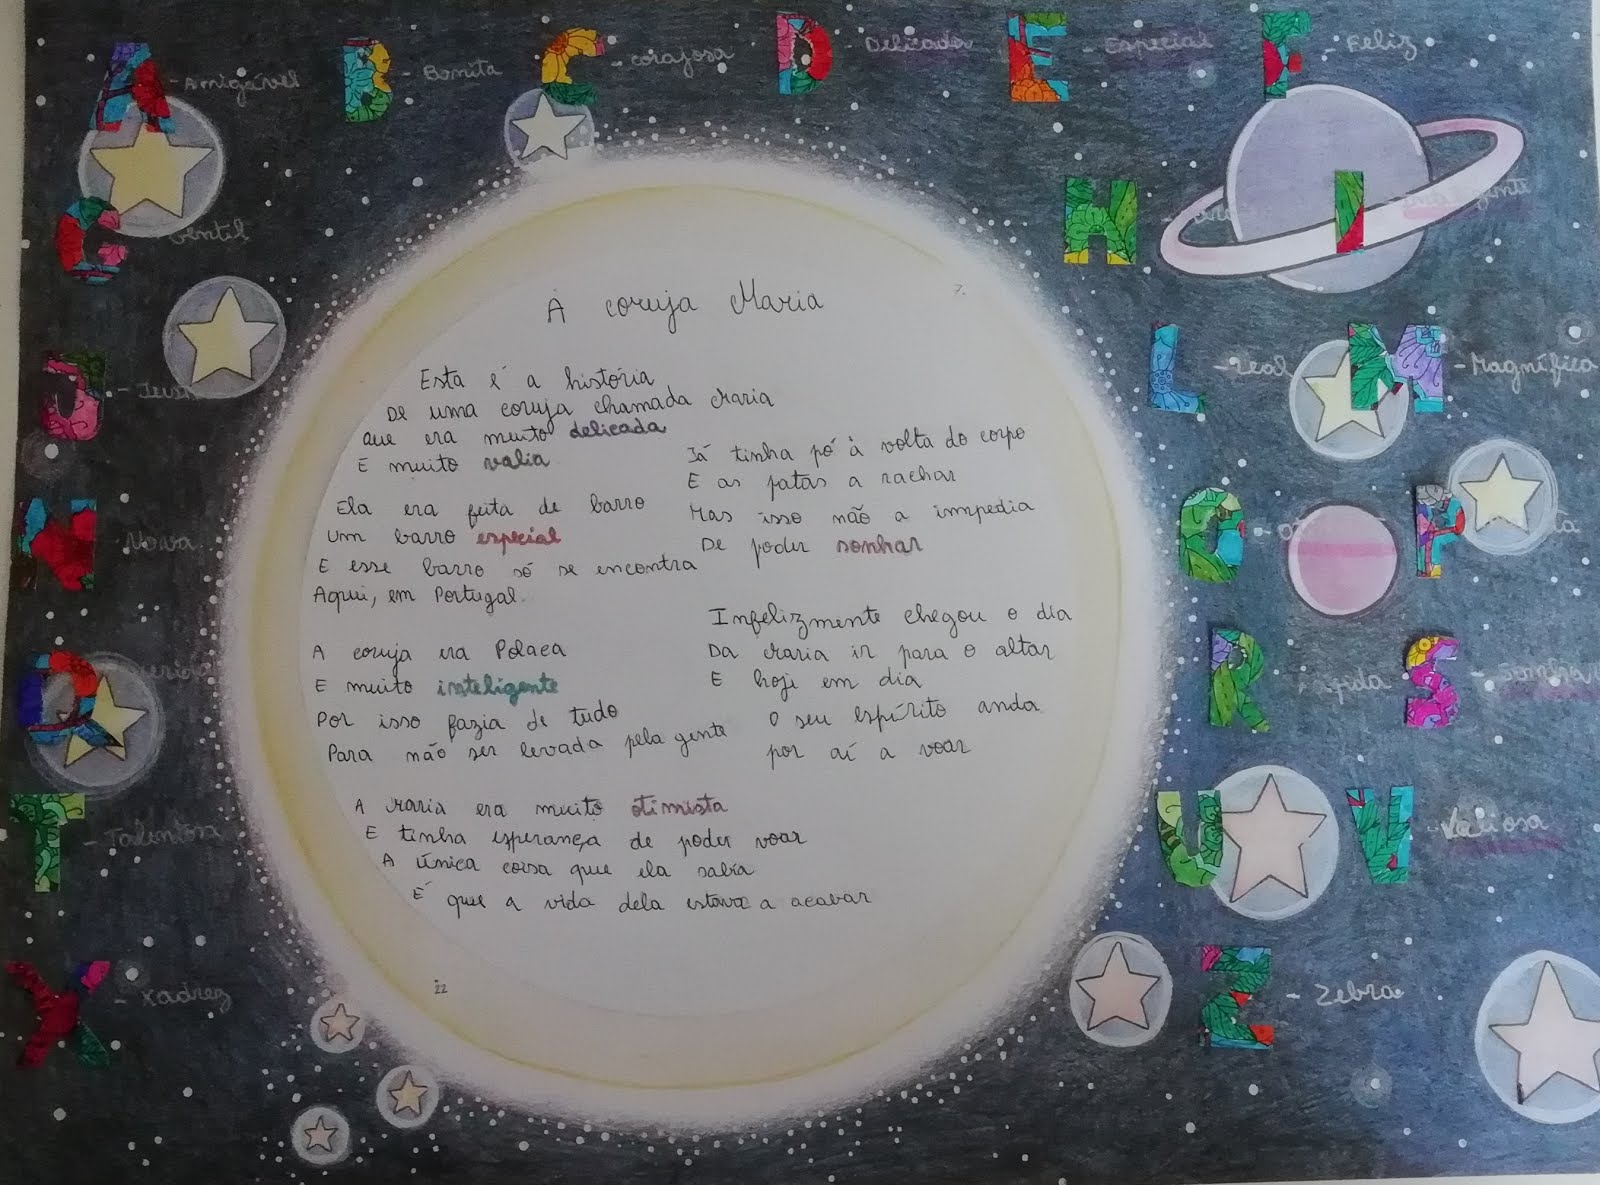 A - Amigável B - Bonita C - corajosa D - Delicada E - Especial F - Feliz
G - Gentil H I
A coruja Maria
7.
Esta é a história
De uma coruja chamada Maria
que era muito delicada
E muito valia
Ela era feita de barro
Um barro especial
E esse barro só se encontra
Aqui, em Portugal.
A coruja era Polaca
E muito inteligente
Por isso fazia de tudo
Para não ser levada pela gente
A Maria era muito otimista
E tinha esperança de poder voar
A única coisa que ela sabia
É que a vida dela estava a acabar
Já tinha pó à volta do corpo
E as patas a rachar
Mas isso não a impedia
De poder sonhar
Infelizmente chegou o dia
Da Maria ir para o altar
E hoje em dia
O seu espírito anda
por aí a voar
22
J L - Leal M - Magnífica
N - Nova O P
Q R - Rápida S
T - Talentosa U V - Valiosa
X - Xadrez Z - Zebra